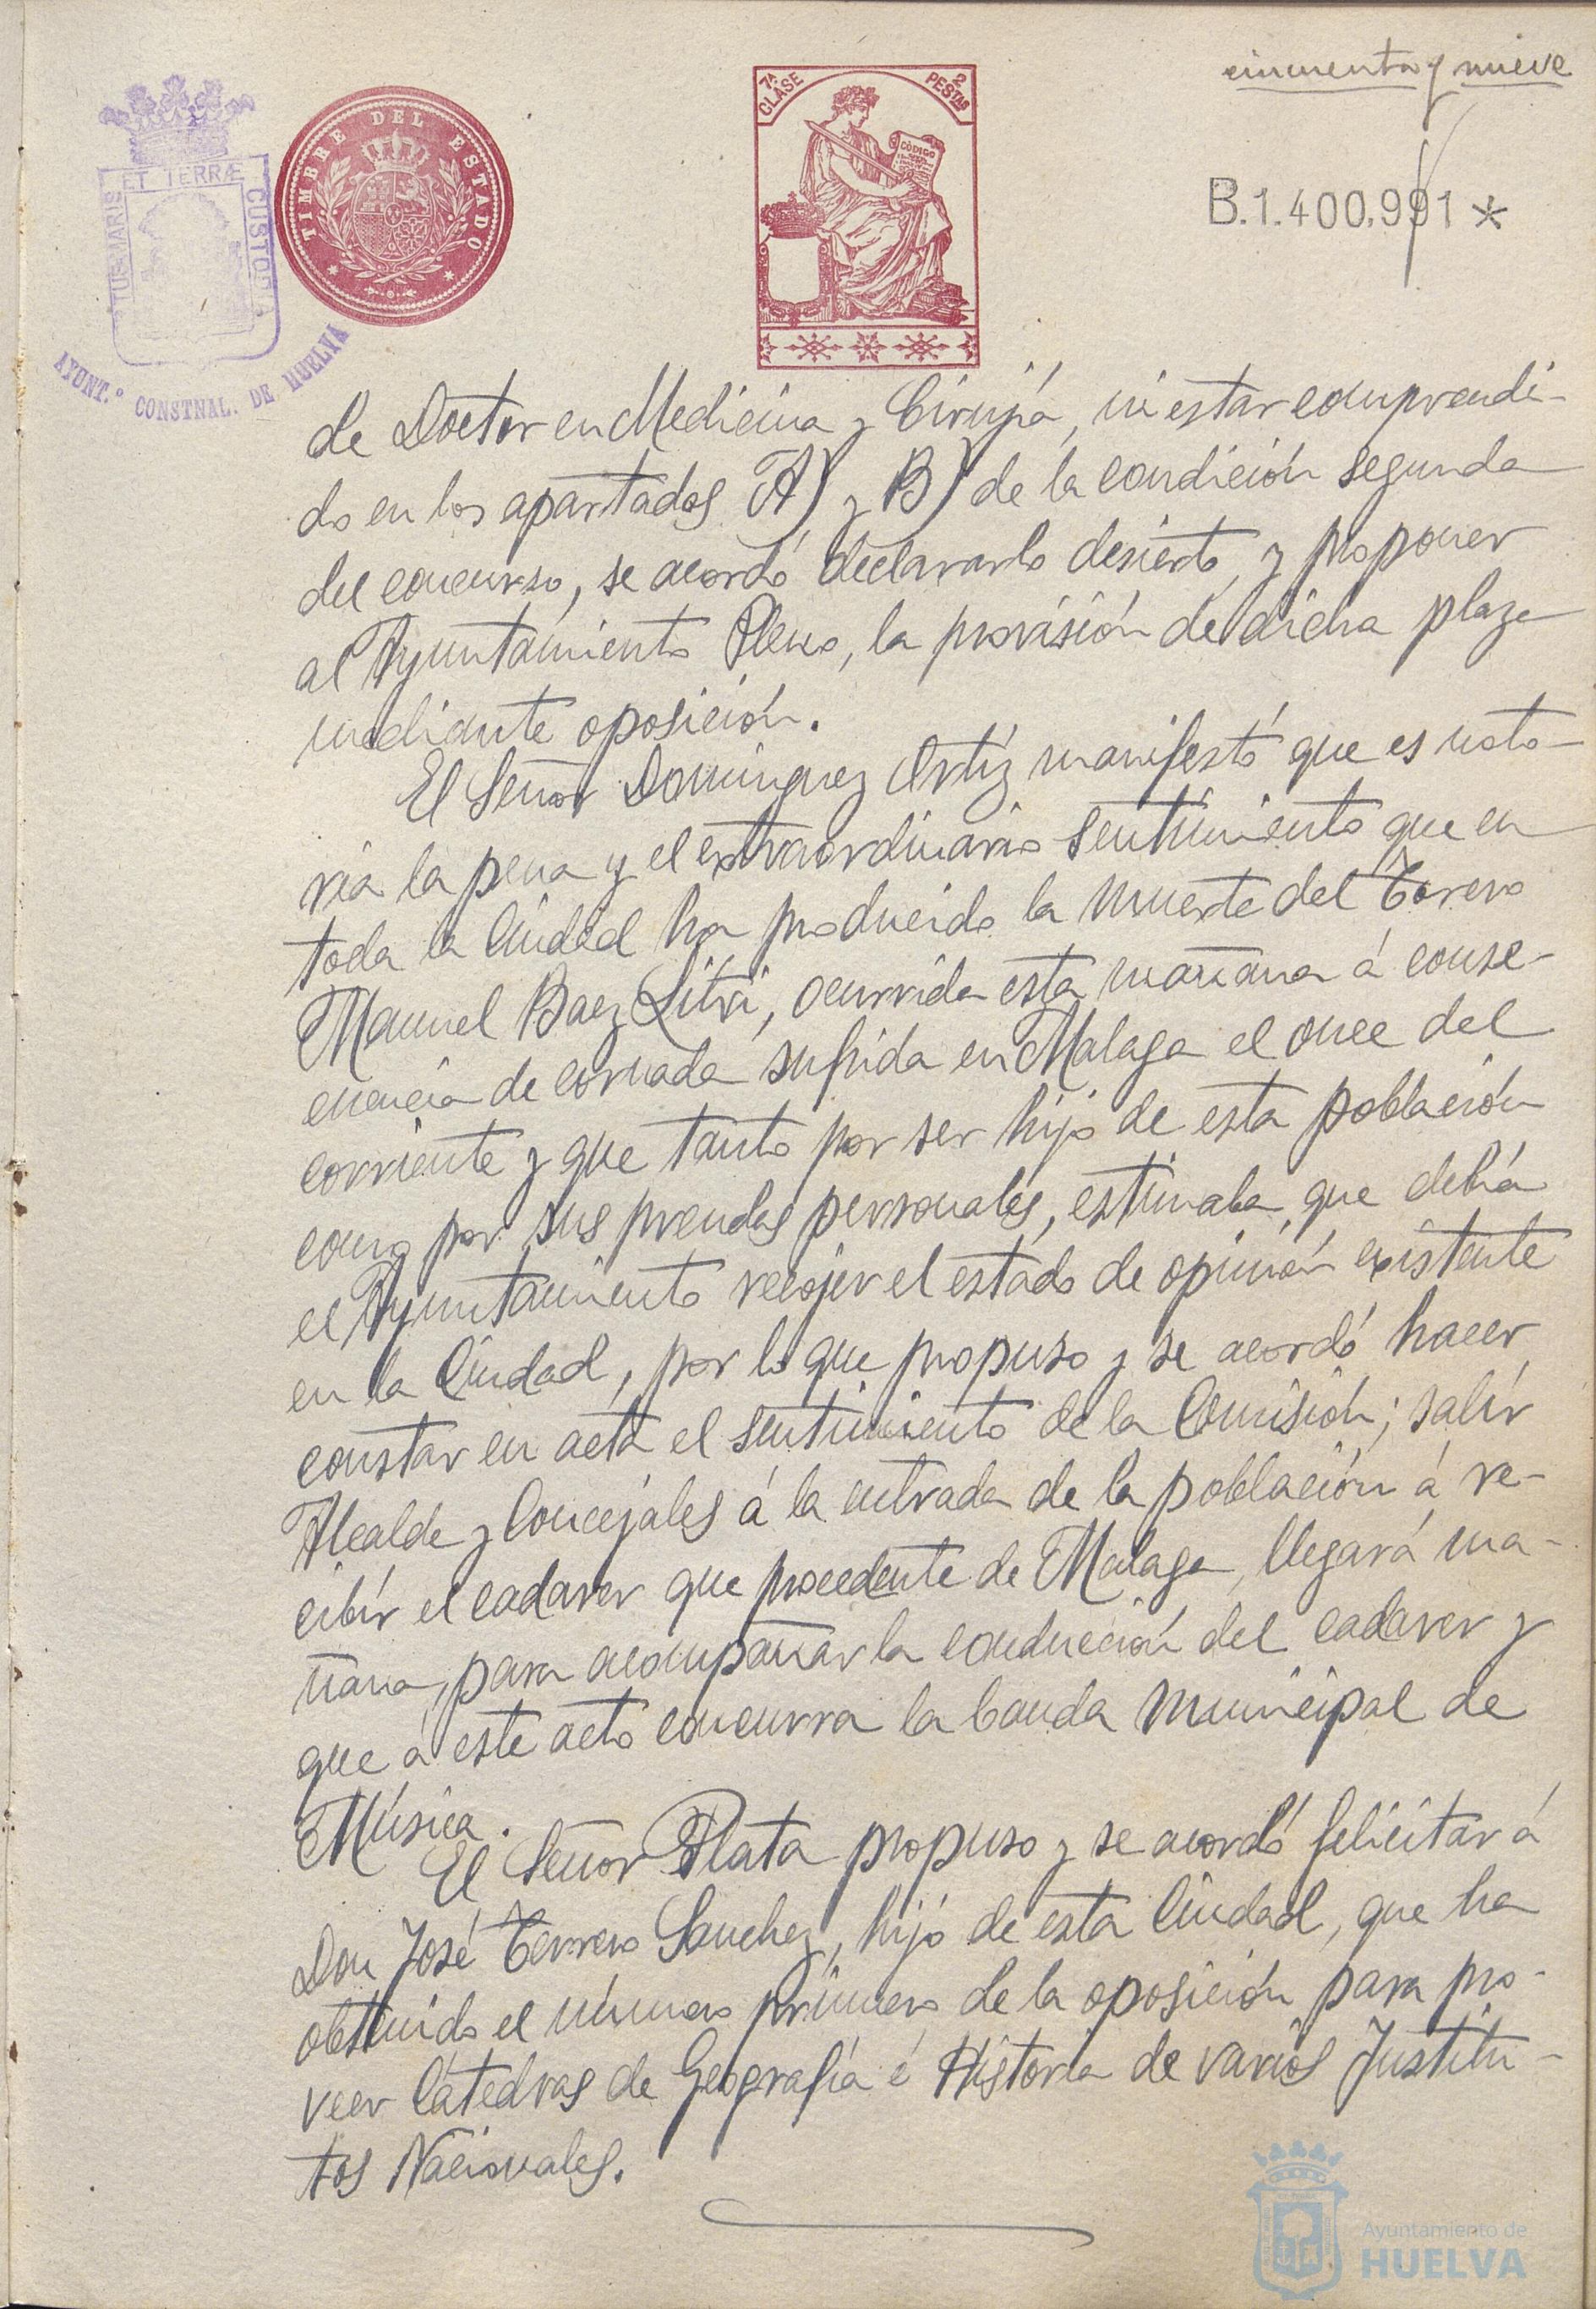 cincuenta y nueve
7ª CLASE
2 PESTAS
CÓDIGO
TIMBRE DEL ESTADO
PORTUS MARIS ET TERRÆ CUSTODIA
AYUNT.º CONSTNAL. DE HUELVA
B.1.400.991*
de Doctor en Medicina y Cirujía, ni estar comprendi-
do en los apartados A) y B) de la condición segunda
del concurso, se acordó declararlo desierto, y proponer
al Ayuntamiento Pleno, la provisión de dicha plaza
mediante oposición.
El Señor Dominguez Ortíz manifestó que es noto-
ria la pena y el extraordinario sentimiento que en
toda la Ciudad ha producido la muerte del Torero
Manuel Baez Litri, ocurrida esta mañana á conse-
cuencia de cornada sufrida en Malaga el once del
corriente y que tanto por ser hijo de esta población
como por sus prendas personales, estimaba, que debía
el Ayuntamiento recojer el estado de opinión existente
en la Ciudad, por lo que propuso y se acordó hacer
constar en acta el sentimiento de la Comisión; salir
Alcalde y Concejales á la entrada de la población á re-
cibír el cadaver que procedente de Malaga, llegará ma-
ñana, para acompañar la conducción del cadaver y
que á este acto concurra la banda municipal de
Música.
El Señor Plata propuso y se acordó felicitar á
Don José Terrero Sanchez, hijo de esta Ciudad, que ha
obtenido el número primero de la oposición para pro-
veer Cátedras de Geografía é Historia de varios Institu-
tos Nacionales.
Ayuntamiento de
HUELVA